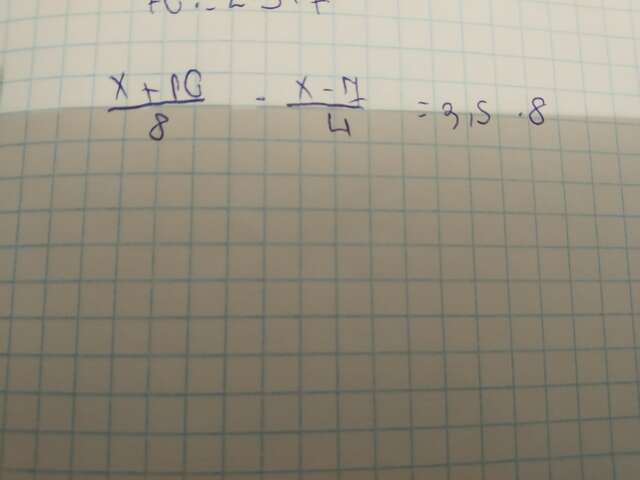 x + 10 / 8 - x - 7 / 4 = 3,5 · 8